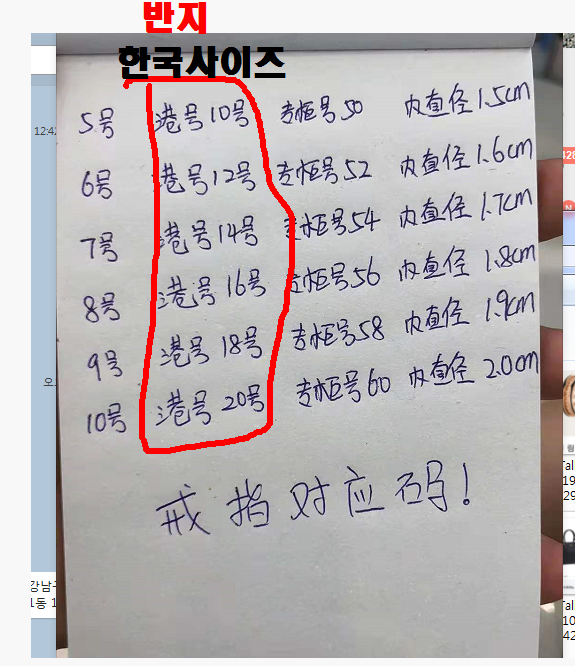 반지
한국사이즈
12:42
5号 港号10号 专柜号50 内直径1.5cm
6号 港号12号 专柜号52 内直径1.6cm
7号 港号14号 专柜号54 内直径1.7cm
8号 港号16号 专柜号56 内直径1.8cm
9号 港号18号 专柜号58 内直径1.9cm
10号 港号20号 专柜号60 内直径2.0cm
戒指对应码!